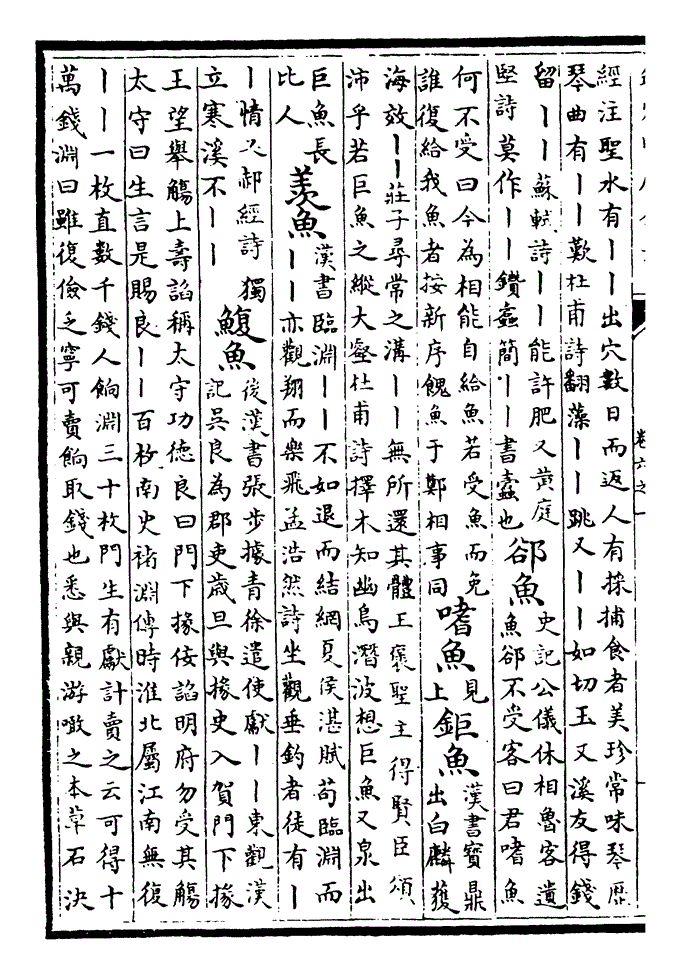 卷六之一
經注聖水有丨丨出穴數日而返人有採捕食者美珍常味琴歷
琴曲有丨丨歎杜甫詩翻藻丨丨跳又丨丨如切玉又溪友得錢
留丨丨蘇軾詩丨丨能許肥又黄庭
堅詩莫作丨丨鑽蠹簡丨丨書蠹也
郤魚
史記公儀休相魯客遺
魚郤不受客曰君嗜魚
何不受曰今為相能自給魚若受魚而免
誰復給我魚者按新序餽魚于鄭相事同
嗜魚
見
上
鉅魚
漢書寶鼎
出白麟獲
海效丨丨莊子尋常之溝丨丨無所還其體王襃聖主得賢臣頌
沛乎若巨魚之縱大壑杜甫詩擇木知幽鳥潛波想巨魚又泉出
巨魚長
比人
羡魚
漢書臨淵丨丨不如退而結網夏侯湛賦苟臨淵而
丨丨亦觀翔而樂飛孟浩然詩坐觀垂釣者徒有丨
丨情又郝經詩獨
立寒溪不丨丨
鰒魚
後漢書張步據青徐遣使獻丨丨東觀漢
記吳良為郡吏歲旦與掾史入賀門下掾
王望舉觴上壽謟稱太守功德良曰門下掾佞謟明府勿受其觴
太守曰生言是賜良丨丨百枚南史禇淵傳時淮北屬江南無復
丨丨一枚直數千錢人餉淵三十枚門生有獻計賣之云可得十
萬錢淵曰雖復儉乏寧可賣餉取錢也悉與親游噉之本草石決